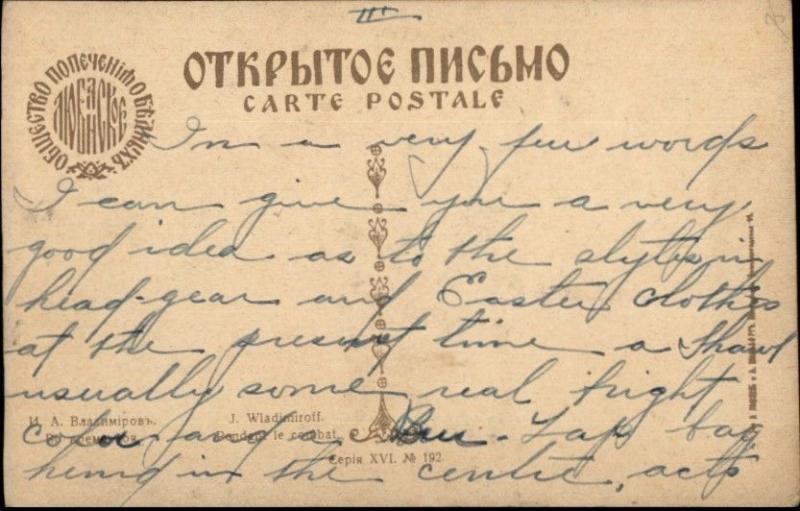 III
ОБЩЕСТВО ПОПЕЧЕНІЯ О БѢДНЫХЪ
ОТКРЫТОЕ ПИСЬМО
CARTE POSTALE
In a very few words
I can give you a very
good idea as to the styles in
head-gear and Easter clothes
at the present time a shawl
usually some real bright
color and a
bag
hemd in the centre, acts
И. А. Владиміровъ.
J. Wladimiroff.
Pendant le combat.
Серія XVI. № 192.